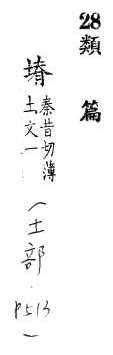 28類篇
塉秦昔切薄
土文一
(土部·P513)